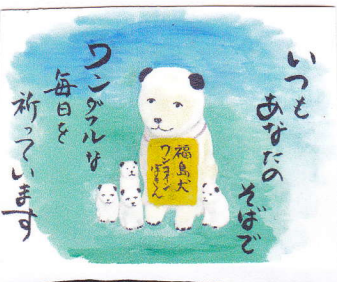 いつも
あなたの
そばで
ワンダフルな
毎日を
祈っています
福島犬
ワンコイン